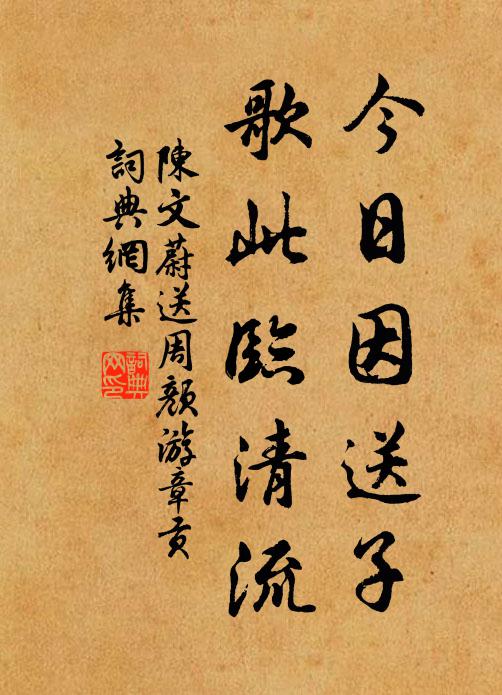 今日因送子
歌此臨清流
陳文蔚送周顏游章貢
詞典網集
詞典
网印